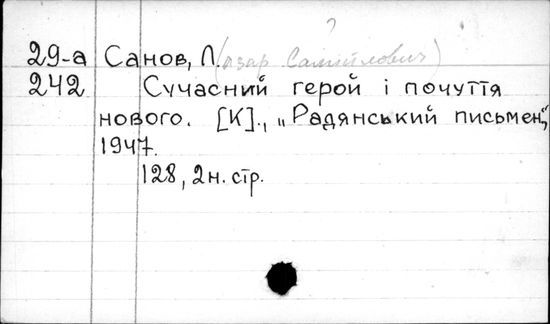 ?
29-а Санов, Л. (азар Самійлович)
242 Сучасний герой і почуття
нового. [К]., „Радянський письмен.",
1947.
128, 2 н. стр.